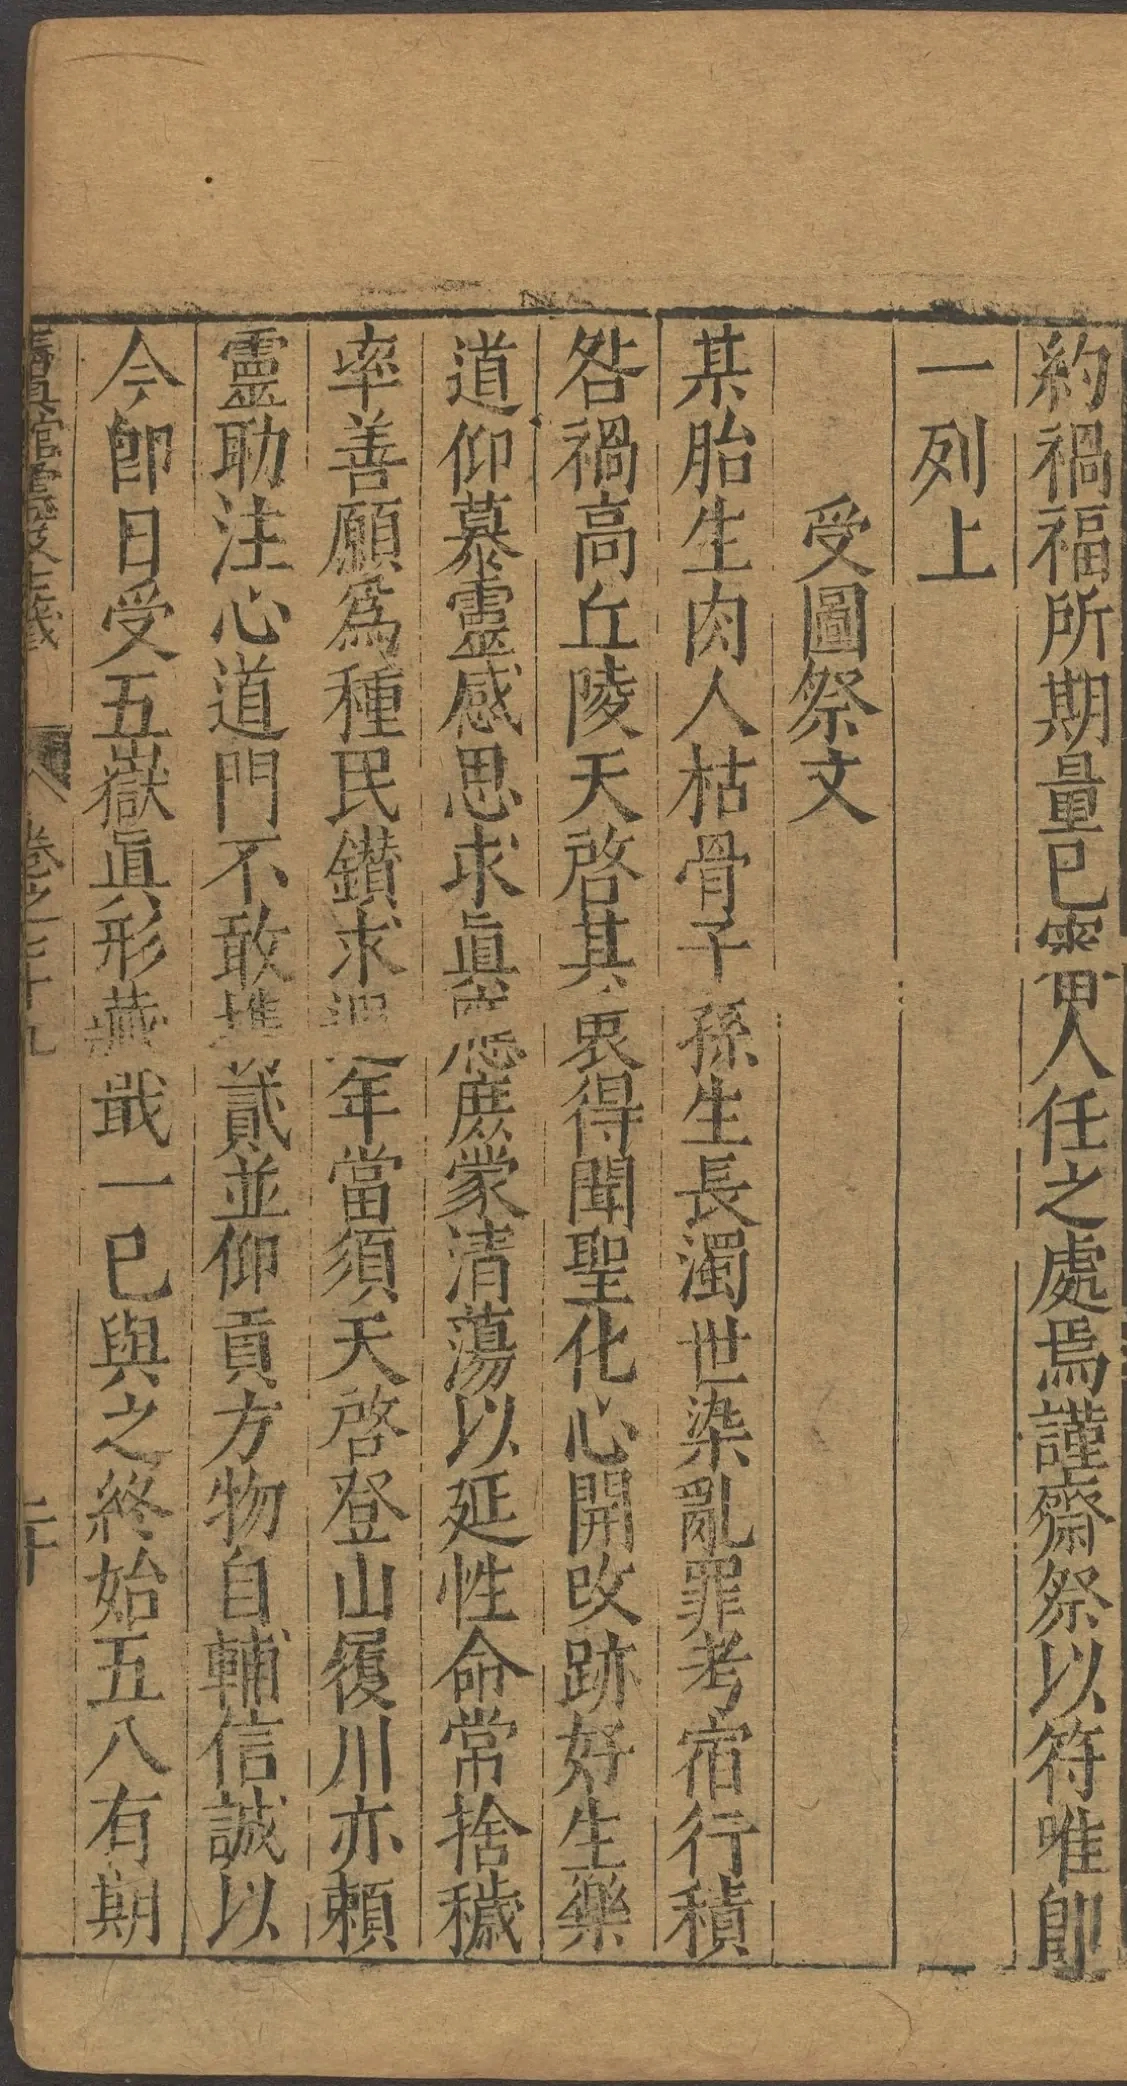 約禍福所期量已審人任之處焉謹齋祭以符唯卽
一列上
受圖祭文
某胎生肉人枯骨子孫生長濁世染亂罪考宿行積
咎禍高丘陵天啓其衷得聞聖化心開改跡好生樂
道仰慕靈感思求眞應庶蒙清蕩以延性命常捨穢
率善願爲種民鑽求年當須天啓登山履川亦賴
靈助注心道門不敢攜貳並仰貢方物自輔信誠以
今卽日受五嶽眞形藏戢一已與之終始五八有期
卷之三十九
二十